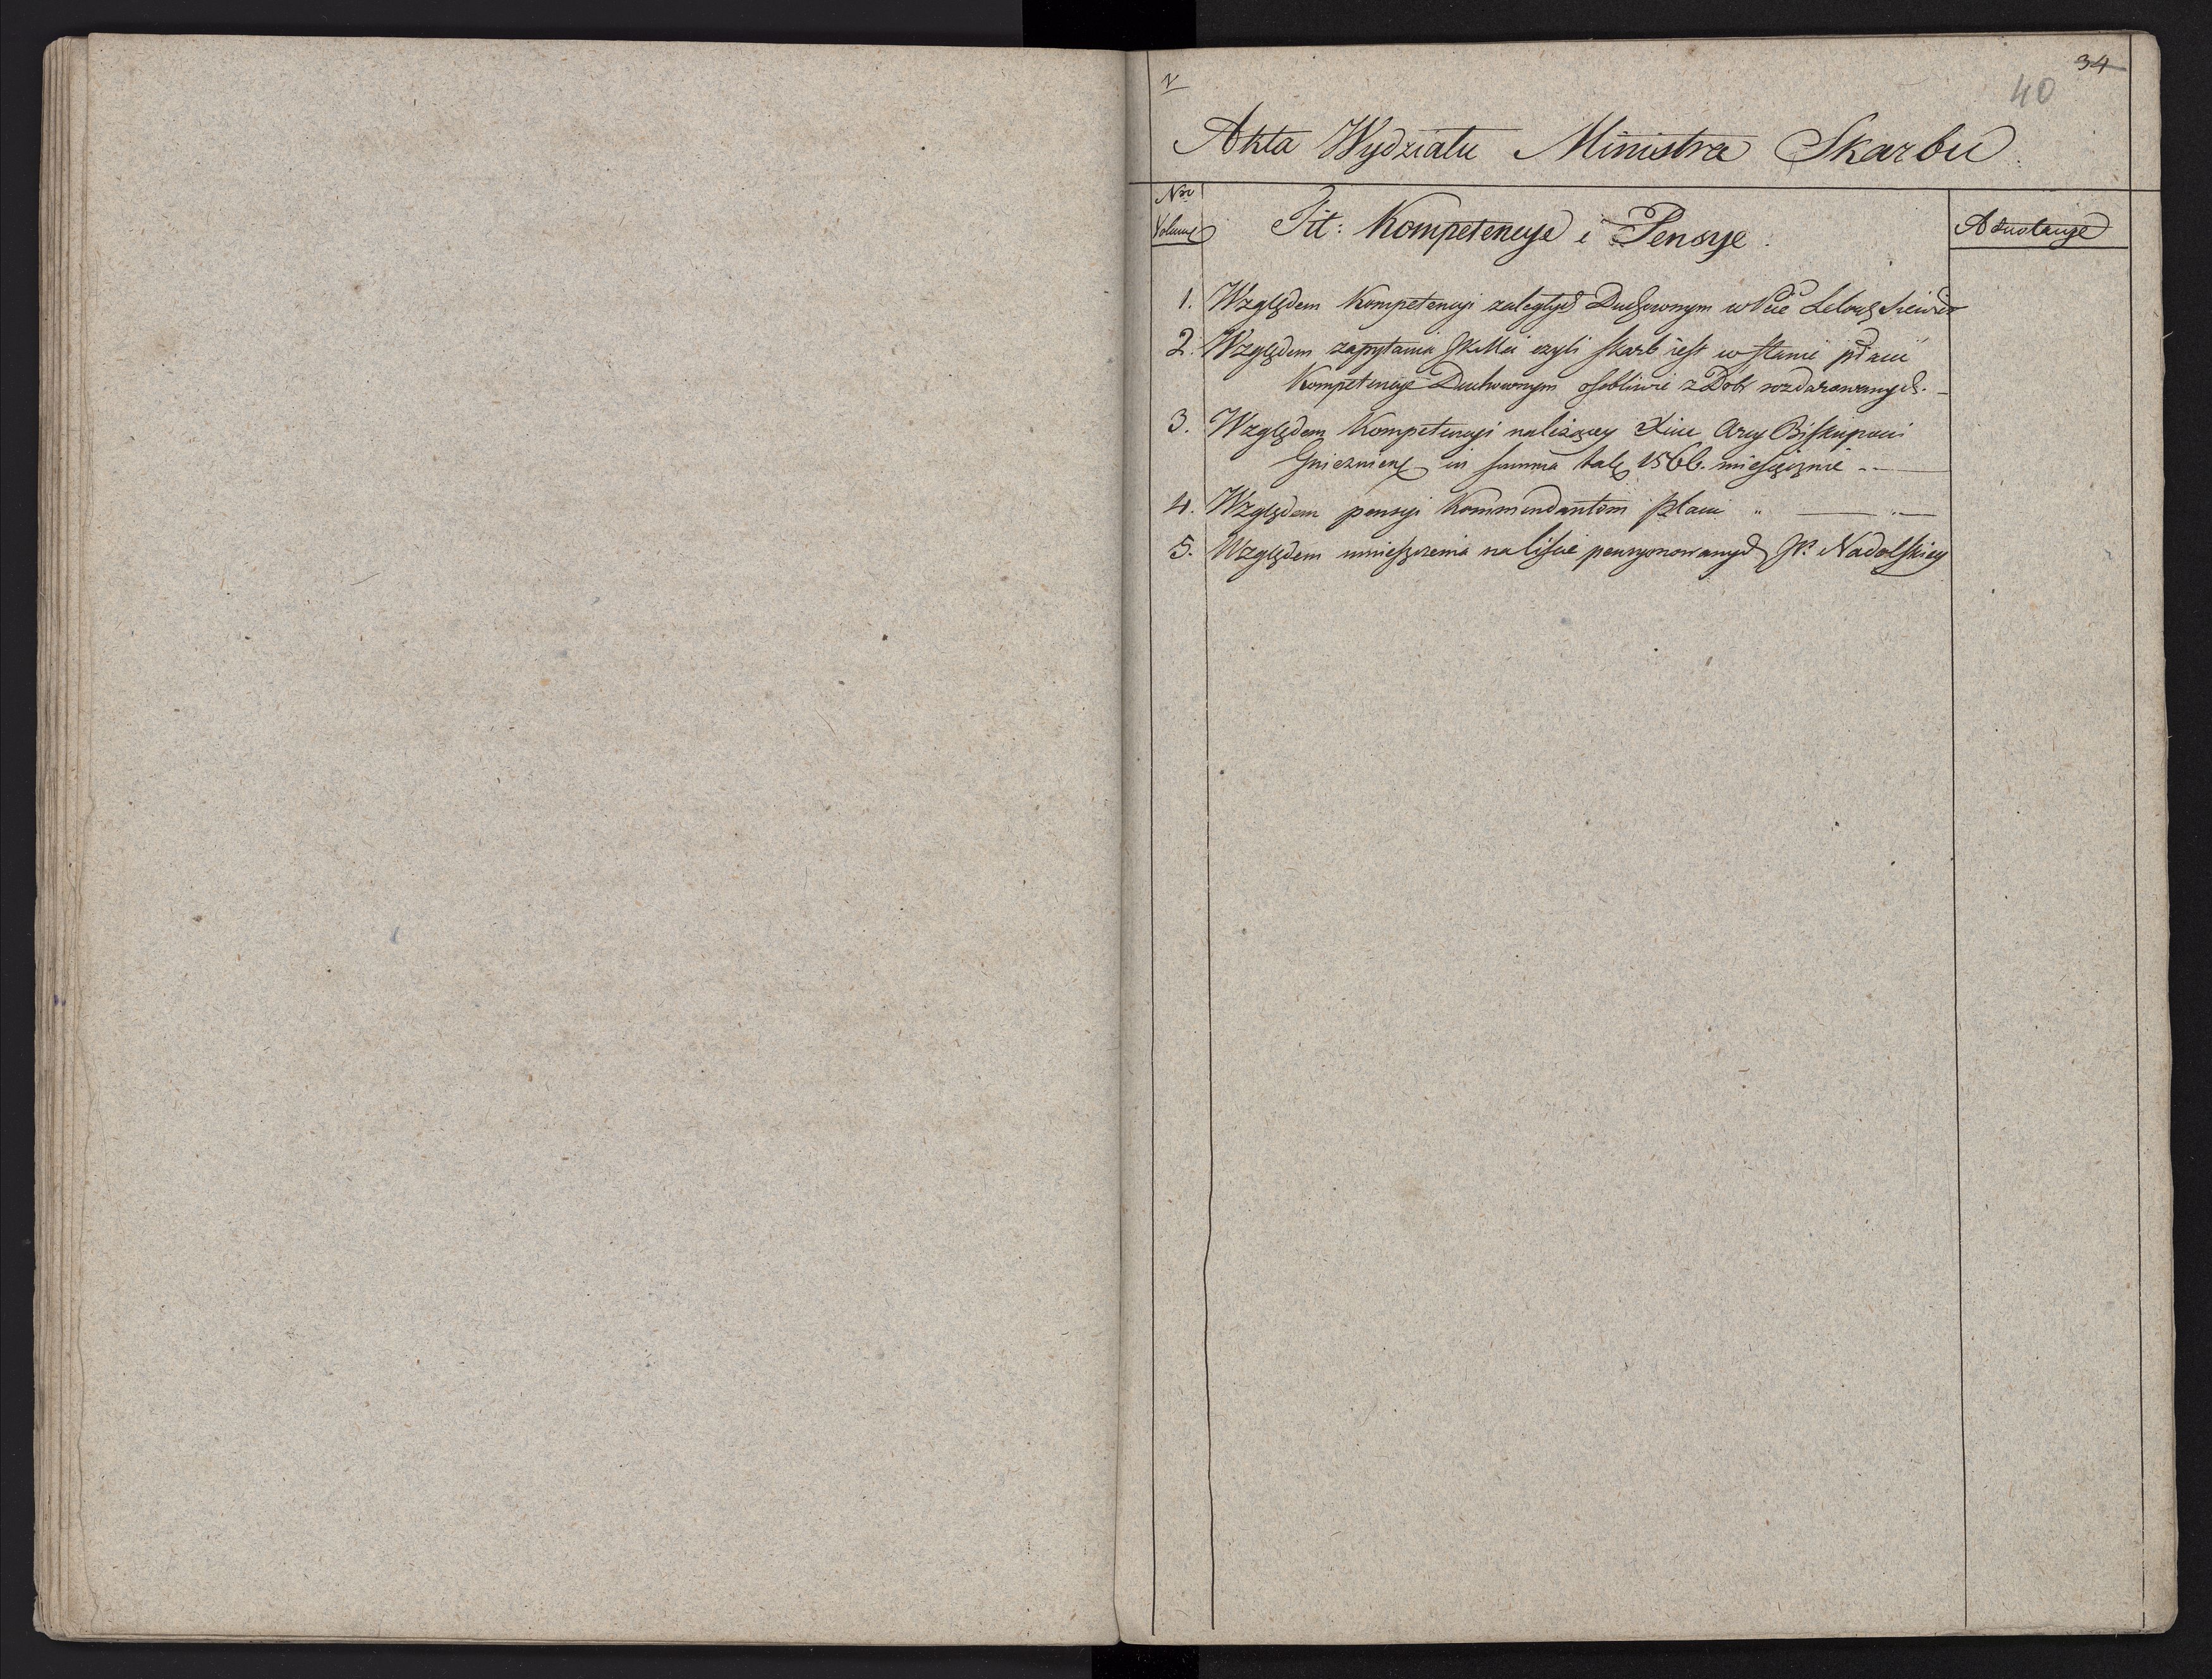 34
40
Akta Wydziału Ministra Skarbu
Nro
Volum
Tit: Kompetencye i Pensye.
Adnotacye
1. Względem Kompetencyi zaległych Duchownym w Pcie Lelows Siewier
2. Względem zapytania JKMci czyli skarb jest w stanie płacić
Kompetencye Duchownym osobliwie z Dobr rozdarowanych. –
3. Względem Kompetencyi należącey Xciu Arcy Biskupowi
Gnieznienː in summa tal 1566. miesięcznie
4. Względem pensyi Kommendantom placu
5. Względem umieszczenia na liście pensyonowanych JP. Nadolskiey